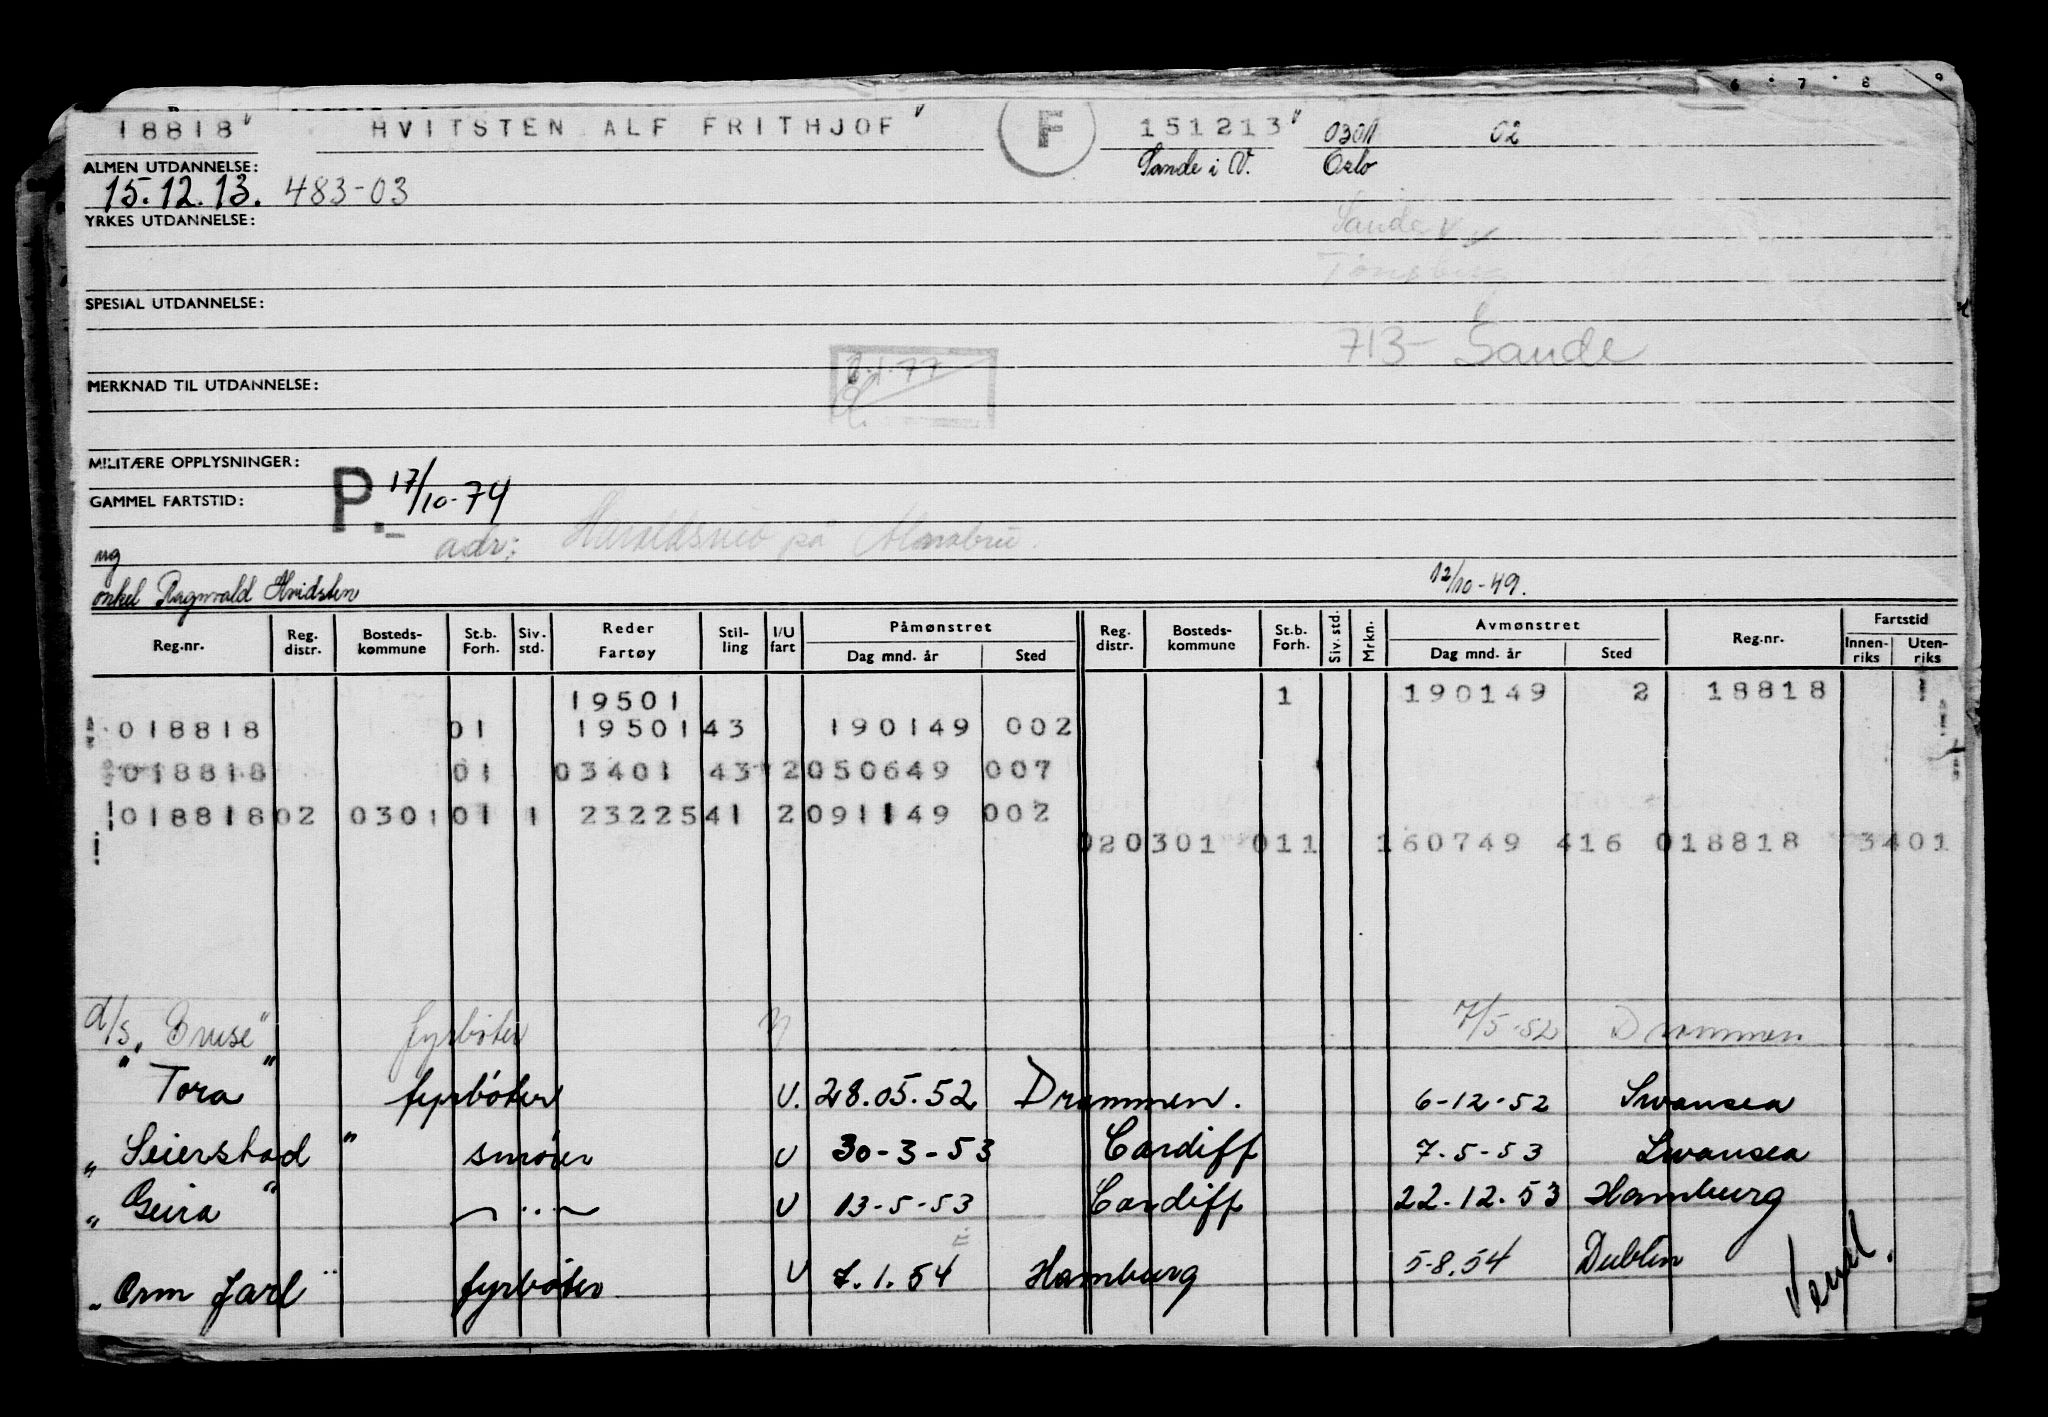 6 7 8 9
18818 HVITSTEN ALF FRITHJOF F 151213 0301 02
ALMEN UTDANNELSE: Sande i V. Oslo
15.12.13. 483-03
YRKES UTDANNELSE:
Sande V
Tønsberg
SPESIAL UTDANNELSE:
713- Sande
3.1.77
MERKNAD TIL UTDANNELSE:
MILITÆRE OPPLYSNINGER:
GAMMEL FARTSTID: P. 17/10-74
adr: på Alnabru.
ug
onkel Ragnvald Hvidsten 12/10-49.
Reg.nr. Reg. distr. Bosteds-kommune St.b. Forh. Siv. std. Reder Fartøy Stil-ling I/U fart Påmønstret Dag mnd. år Sted Reg. distr. Bosteds-kommune St.b. Forh. Siv. std. Mrkn. Avmønstret Dag mnd. år Sted Reg.nr. Fartstid Innen-riks Uten-riks
19501 1 190149 2 18818
018818 01 19501 43 190149 002
018818 01 03401 43 2 050649 007
018818 02 0301 01 1 23225 41 2 091149 002
02 0301 01 1 160749 416 018818 3401
d/s "Bruse" fyrbøter N 7/5-52 Drammen
" Tora " fyrbøter U. 28.05.52 Drammen. 6-12-52 Swansea
" Seierstad " smører U 30-3-53 Cardiff 7.5-53 Swansea
" Geira " — " — U 13-5-53 Cardiff 22.12.53 Hamburg
" Orm Jarl " fyrbøter U 7.1.54 Hamburg 5-8.54 Dublin
Vend.